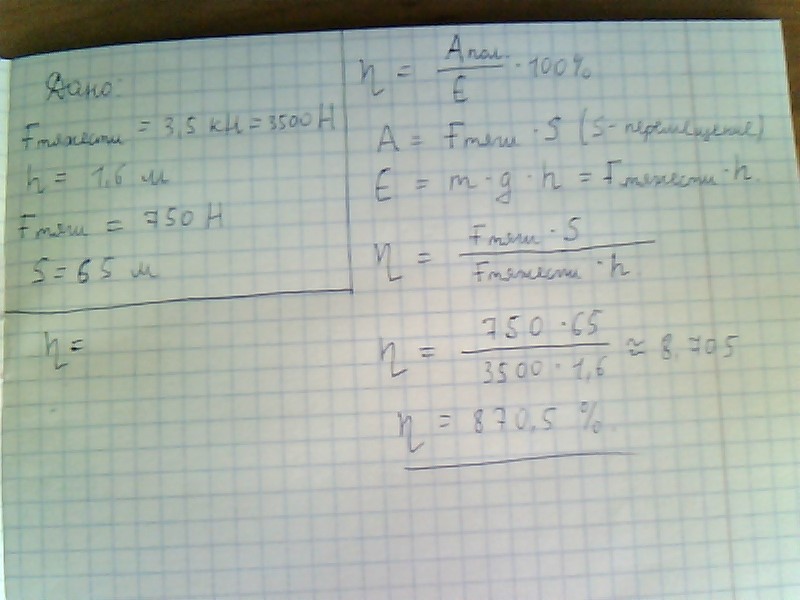 Дано:
Fтяжести = 3,5 кН = 3500 Н
h = 1,6 м
Fтяги = 750 Н
S = 65 м
η =
η = Aпол. / E · 100%
A = Fтяги · S (S - перемещение)
E = m · g · h = Fтяжести · h.
η = Fтяги · S / Fтяжести · h
η = 750 · 65 / 3500 · 1,6 ≈ 8.705
η = 870,5 %